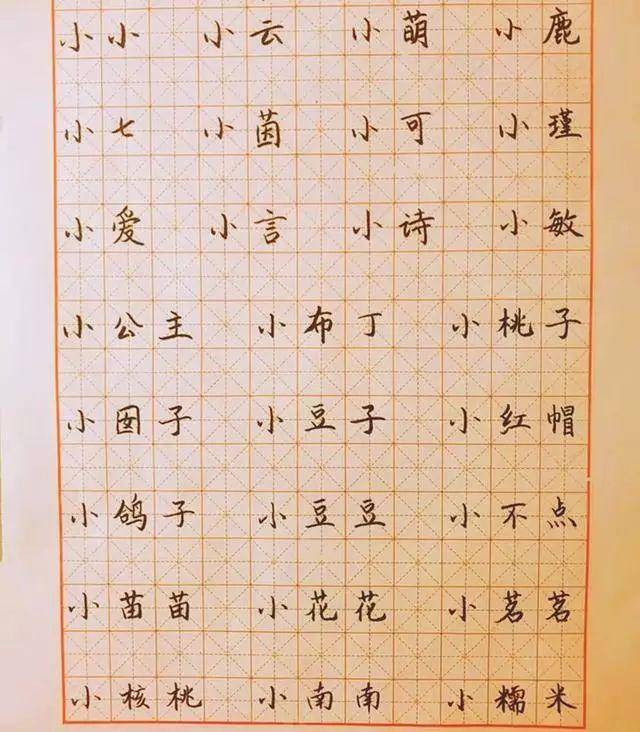 小小 小云 小萌 小鹿
小七 小茵 小可 小瑾
小爱 小言 小诗 小敏
小公主 小布丁 小桃子
小囡子 小豆子 小红帽
小鸽子 小豆豆 小不点
小苗苗 小花花 小茗茗
小核桃 小南南 小糯米